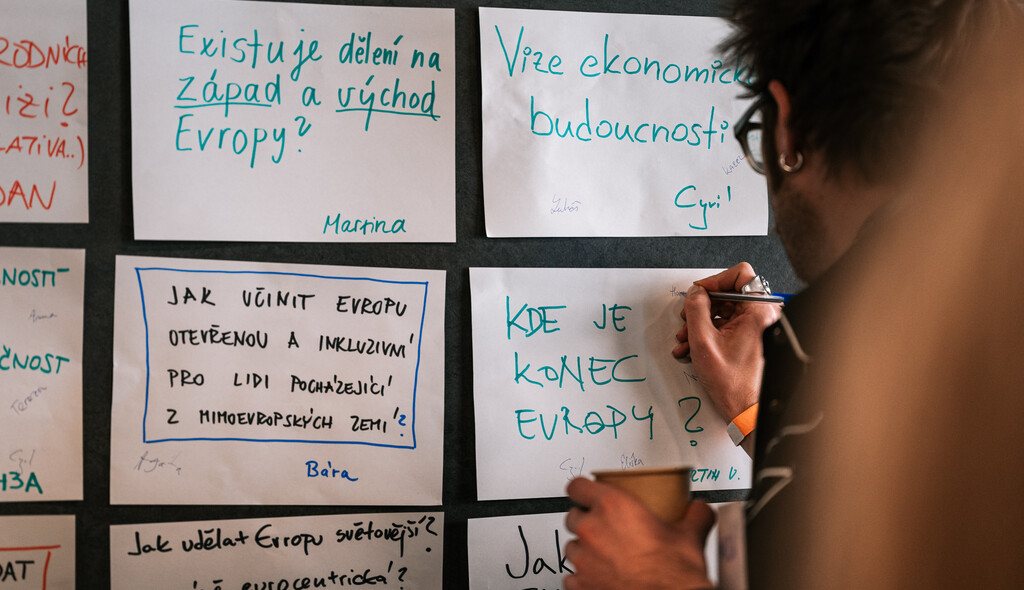 RODNÍCH
IZI?
LATIVA..)
DAN
Existuje dělení na
západ a východ
Evropy?
Martina
Vize ekonomick
budoucnosti
Karel
Luboš
Cyril
NOSTI
Anna
ČNOST
Tereza
Cyril
H3A
JAK UČINIT EVROPU
OTEVŘENOU A INKLUZIVNÍ
PRO LIDI POCHÁZEJÍCÍ
Z MIMOEVROPSKÝCH ZEMÍ?
Bára
KDE JE
KONEC
EVROPY?
Eliška
RTIN V.
DAT
Jak udělat Evropu světovější?
eurocentrická?
Jak